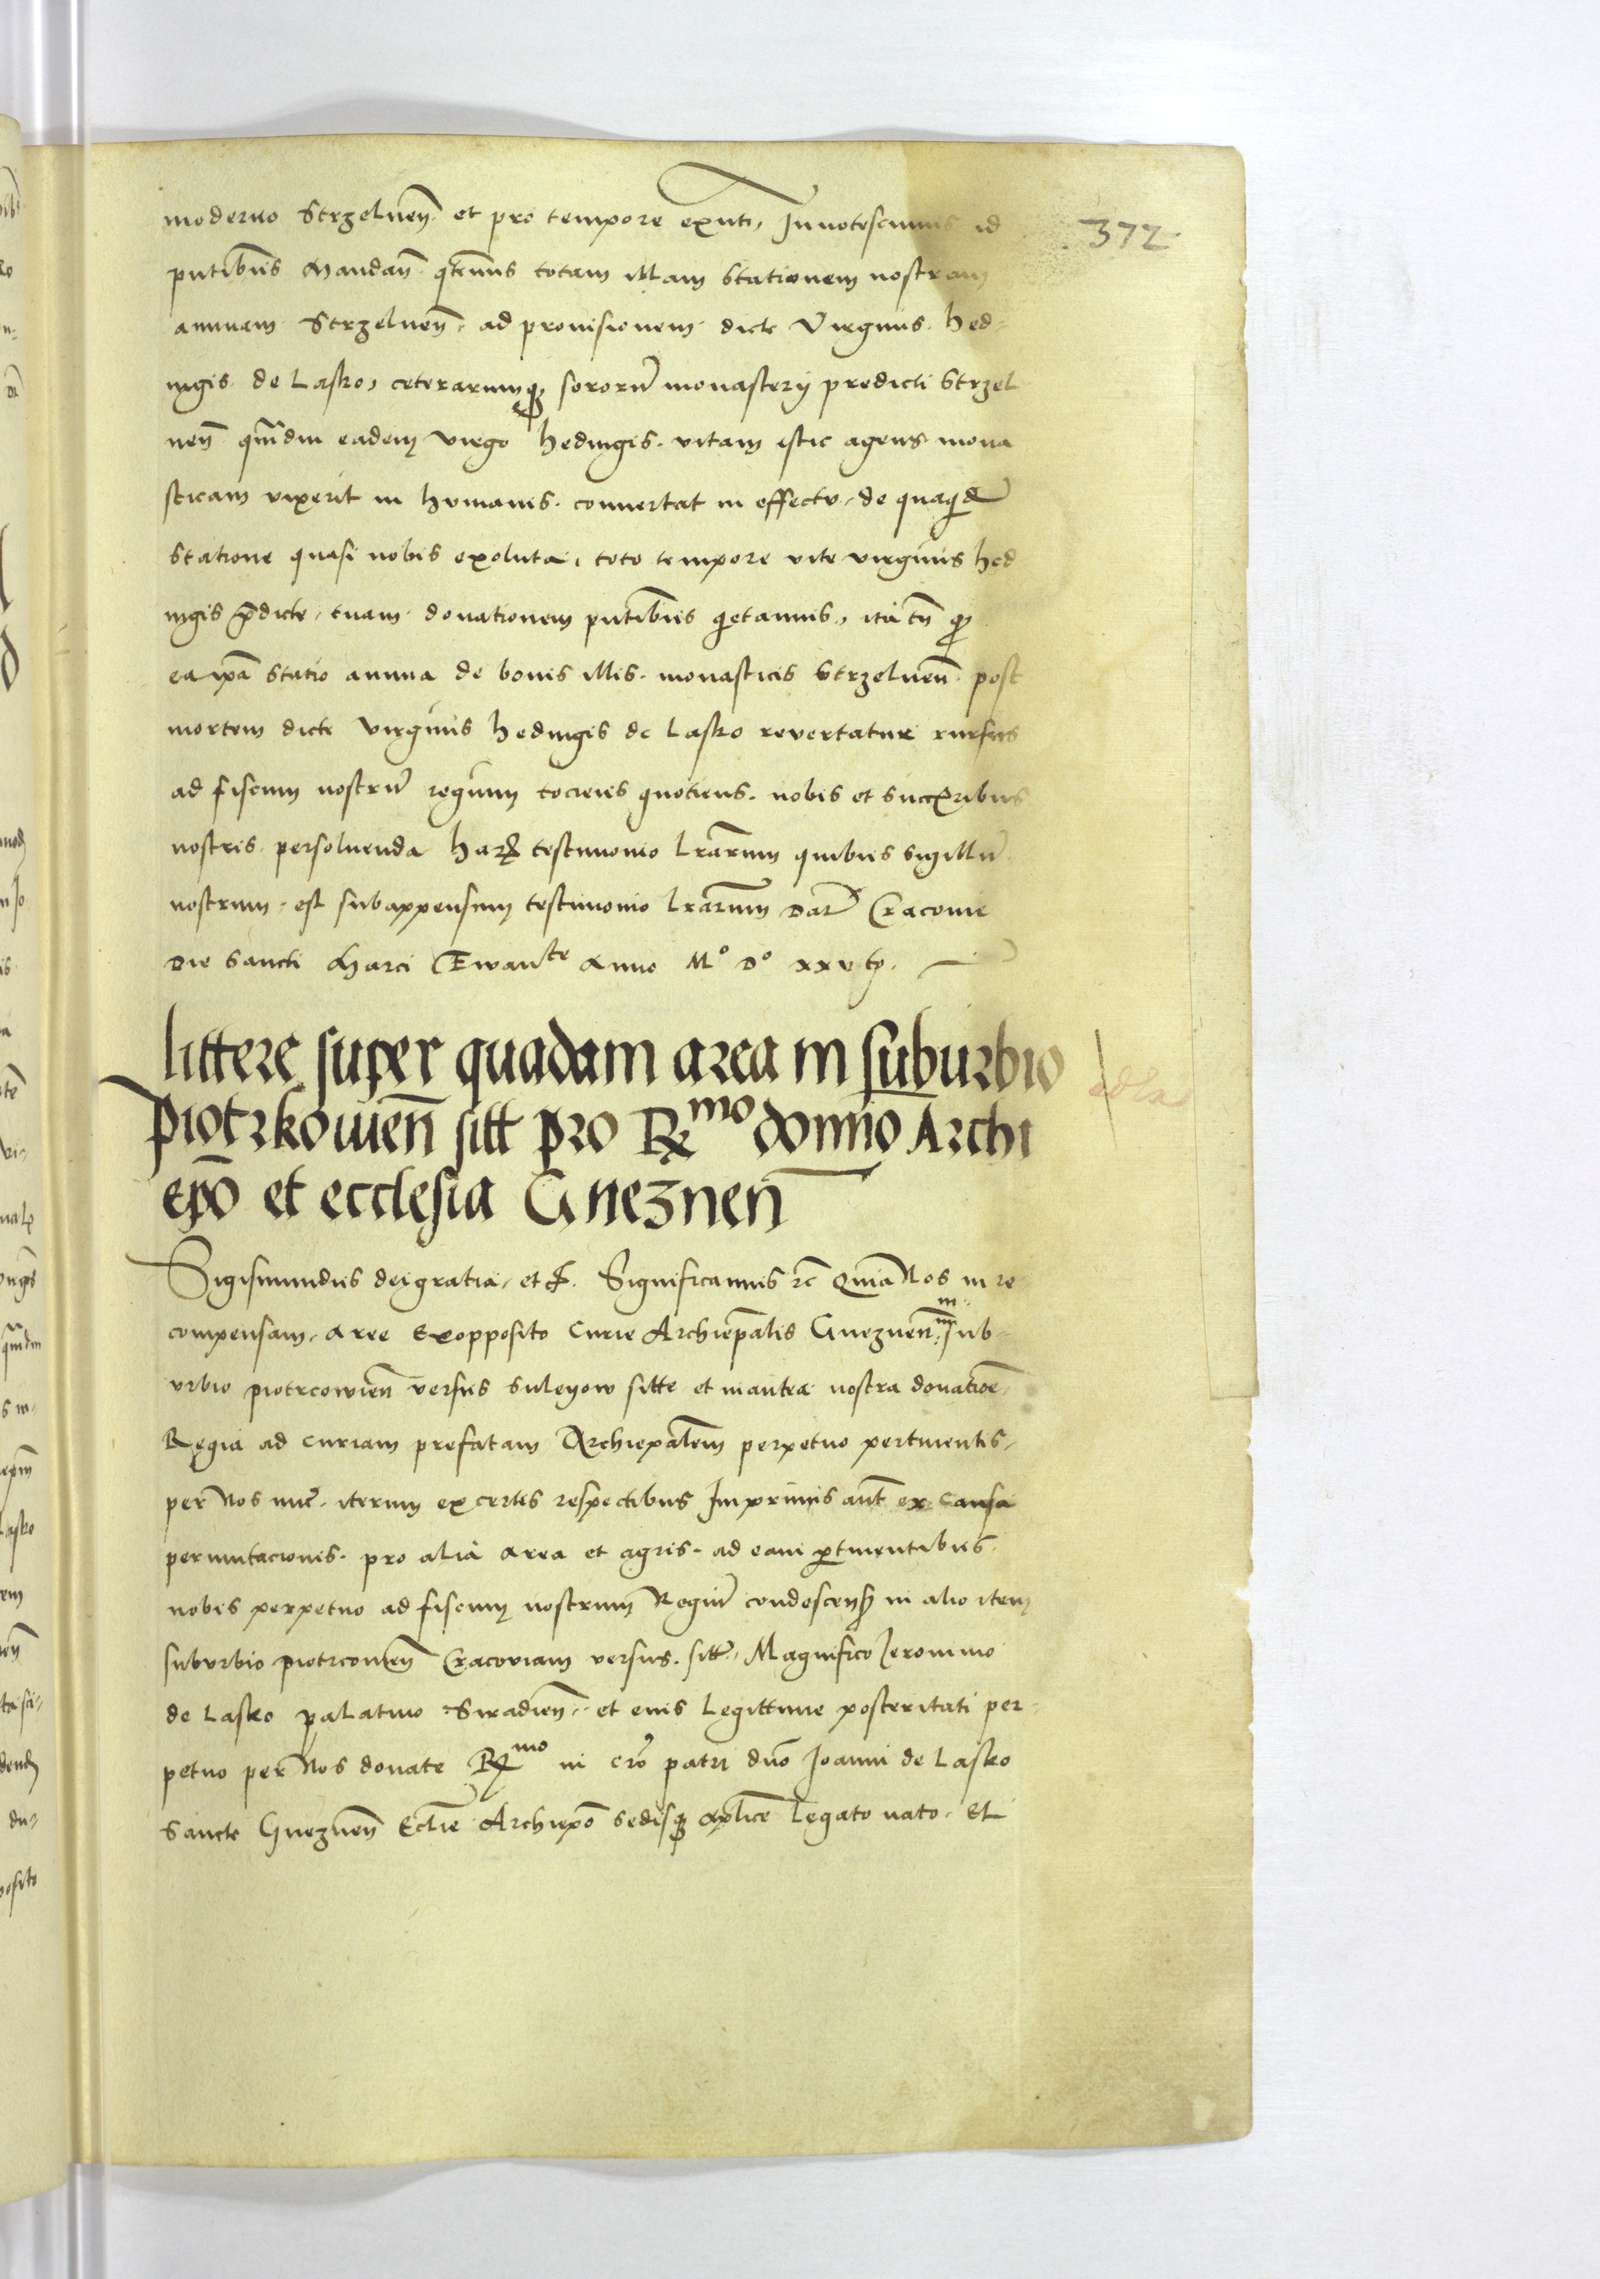 372
moderno Strzelnen̄ et pro tempore exn̄ti, Innotescimus id
pn̄tibus Mandan̄ qt̄enus totam illam stationem nostram
annuam Strzelnen̄ ad prouisionem dicte Virginis Hed-
uigis de Lasko, ceterarumq; sororū monasterij predicti Strzel
nen̄ qm̄diu eadem virgo Heduigis vitam istic agens mona
sticam vixerit in humanis conuertat in effectu, de quaqdē
statione quasi nobis exoluta, toto tempore vite virginis Hed
uigis p̄dicte, euam donationem pn̄tibus qietamus, ita tn̄ q
ea ip̄a statio annua de bonis illis monasticis Strzelnen̄ post
mortem dicte virginis Heduigis de Lasko revertatur rursus
ad fiscum nostrū regium tociens quotiens nobis et successoribus
nostris persoluenda Harꝝ testimonio lr̄arum quibus sigillū
nostrum est subappensum testimonio lr̄arum Datꝝ Cracouie
Die sancti Marci Ewanᵗᵉ Anno Mº Dº xxvto.
littere super quadam area in suburbio
Piotrkowien̄ sitt pro Rmo domino Archi
epo et ecclesia Gneznen̄
Sigismundus dei gratia, et c. Significamus rc̄ Quia Nos in re
compensam, aree Exopposito Curie Archiep̄alis Gneznen̄ in sub-
urbio piotrcowien̄ versus suleyow sitte et in antea nostra donatioē
Regia ad curiam prefatam Archiepālem perpetuo pertinentis,
per Nos nūc iterum ex certis respectibus Imprimis aut̄ ex causa
permutacionis pro alia area et agris ad eam ꝑtinentibus
nobis perpetuo ad fiscum nostrum Regiū condescen in alio item
suburbio piotrcouien̄ Cracoviam versus sitt̄, Magnifico Jeronimo
de Lasko palatino Siradien̄ et eius legittime posteritati per-
petuo per Nos donate Rmo in cro patri dn̄o Joanni de Lasko
Sancte Gneznen̄ Eccl̄ie Archiepō sedisq; ap̄lice legato nato. Et